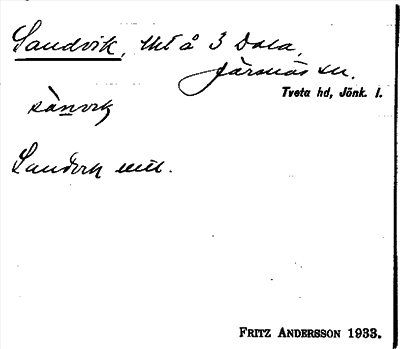 Sandvik, lht å 3 Dala,
Järsnäs sn.
Tveta hd, Jönk. l.
sànvik
Sandvik
FRITZ ANDERSSON 1933.